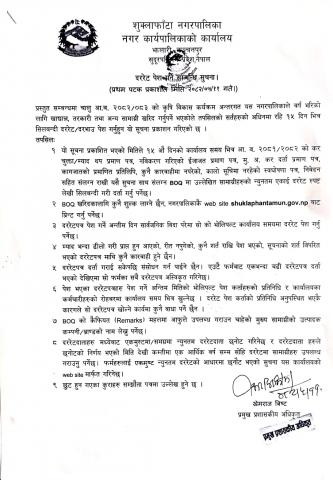 शुक्लाफाँटा नगरपालिका
नगर कार्यपालिकाको कार्यालय
झलारी, कञ्चनपुर
सुदूरपश्चिम प्रदेश, नेपाल
दररेट पेश गर्ने सम्बन्धि सूचना।
(प्रथम पटक प्रकाशित मिति २०८२/०५/११ गते।)
प्रस्तुत सम्बन्धमा चालु आ.ब. २०८२/०८३ को कृषि विकास कार्यक्रम अन्तरगत यस नगरपालिकाले वर्ष भरिको
लागि खाद्यान्न, तरकारी तथा अन्य सामाग्री खरिद गर्नुपर्ने भएकोले तपसिलको सर्तहरुको अधिनमा रही १५ दिन भित्र
सिलबन्दी दररेट/दरभाउ पेश गर्नुहुन यो सूचना प्रकाशन गरिएको छ ।
तपसिलः
१. यो सूचना प्रकाशित भएको मितिले १५ औं दिनको कार्यालय समय भित्र आ.ब. २०८१/२०८२ को कर
चुक्ता/म्याद थप प्रमाण पत्र, नविकरण गरिएको ईजाजत प्रमाण पत्र, मु. अ. कर दर्ता प्रमाण पत्र,
कागजातको प्रमाणित प्रतिलिपि, कुनै कारबाहीमा नपरेको, कालो सूचिमा नरहेको स्वघोषणा पत्र, निवेदन
सहित संलग्न राखी यसै सूचना साथ संलग्न BOQ मा उल्लेखित सामाग्रीहरुको न्युनतम एकाई दररेट स्पष्ट
लेखी सिलबन्दी गरी दर्ता गर्नु पर्नेछ।
२. BOQ खरिदकालागि कुनै शुल्क लाग्ने छैन, नगरपालिकाकै web site shuklaphantamun.gov.np बाट
प्रिन्ट गर्नु पर्नेछ।
३. दररेटपत्र पेश गर्ने अन्तीम दिन सार्वजनिक विदा परेमा सो को भोलिपल्ट कार्यालय समयमा दररेट पेश गर्नु
पर्नेछ।
४. म्याद बन्दा ढीलो गरी प्राप्त हुन आएको, रीत नपुगेको, कुनै शर्त राखि पेश भएको, सूचनाको शर्त विपरित
भएको दररेटपत्र माथि कुनै कारबाही हुने छैन।
५. दररेटपत्र दर्ता गराई सकेपछि संसोधन गर्न पाईने छैन। एउटै फर्मबाट एकभन्दा बढी दररेटपत्र दर्ता
भएको देखिएमा सो फर्मका सबै दररेटपत्र अस्विकृत गरिनेछ।
६. पेश भएका दररेटपत्रहरु पेश गर्ने अन्तिम मितिको भोलिपल्ट पेश कर्ताहरुको प्रतिनिधि र कार्यालयका
कर्मचारीहरुको रोहबरमा कार्यालय समय भित्र खुल्नेछ । दररेट पेश कर्ताको प्रतिनिधि अनुपस्थित भएकै
कारणले सो दररेटपत्र खोल्ने कार्यमा कुनै बाधा पर्ने छैन ।
७. BOQ को कैफियत (Remarks) महलमा आफूले उपलब्ध गराउन चाहेको मुख्य सामाग्रीको उत्पादक
कम्पनी/ब्राण्डको नाम लेख्नु पर्नेछ।
८. दररेटदाताहरु मध्येबाट एकमुष्टमा/समग्रमा न्युनतम दररेटदाता छनौट गरिनेछ र दररेटदाता हरुले
छनोटको निर्णय भएको मिति देखी कम्तीमा एक आर्थिक वर्ष सम्म सोहि दररेटमा सामाग्रीहरु उपलब्ध
गराउनु पर्नेछ। फर्महरुलाई एकमुष्ट न्युनतम दररेटको आधारमा छनोट भएको सूचना यस कार्यालयको
web site मार्फत गरिनेछ।
९. छुट हुन गएका कुराहरु सम्झौता पत्रमा उल्लेख हुने छ ।
खेमराज बिष्ट
प्रमुख प्रशासकीय अधिकृत
प्रमुख प्रशासकीय अधिकृत